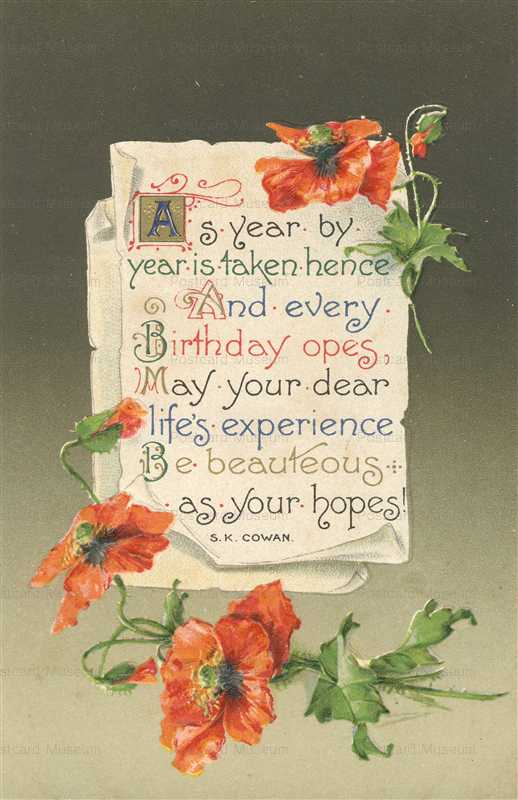 As·year·by
year·is·taken·hence
And·every·
Birthday opes,
May·your·dear
life's·experience
Be·beauteous
·as·your·hopes!
S.K.COWAN.
Postcard Museum